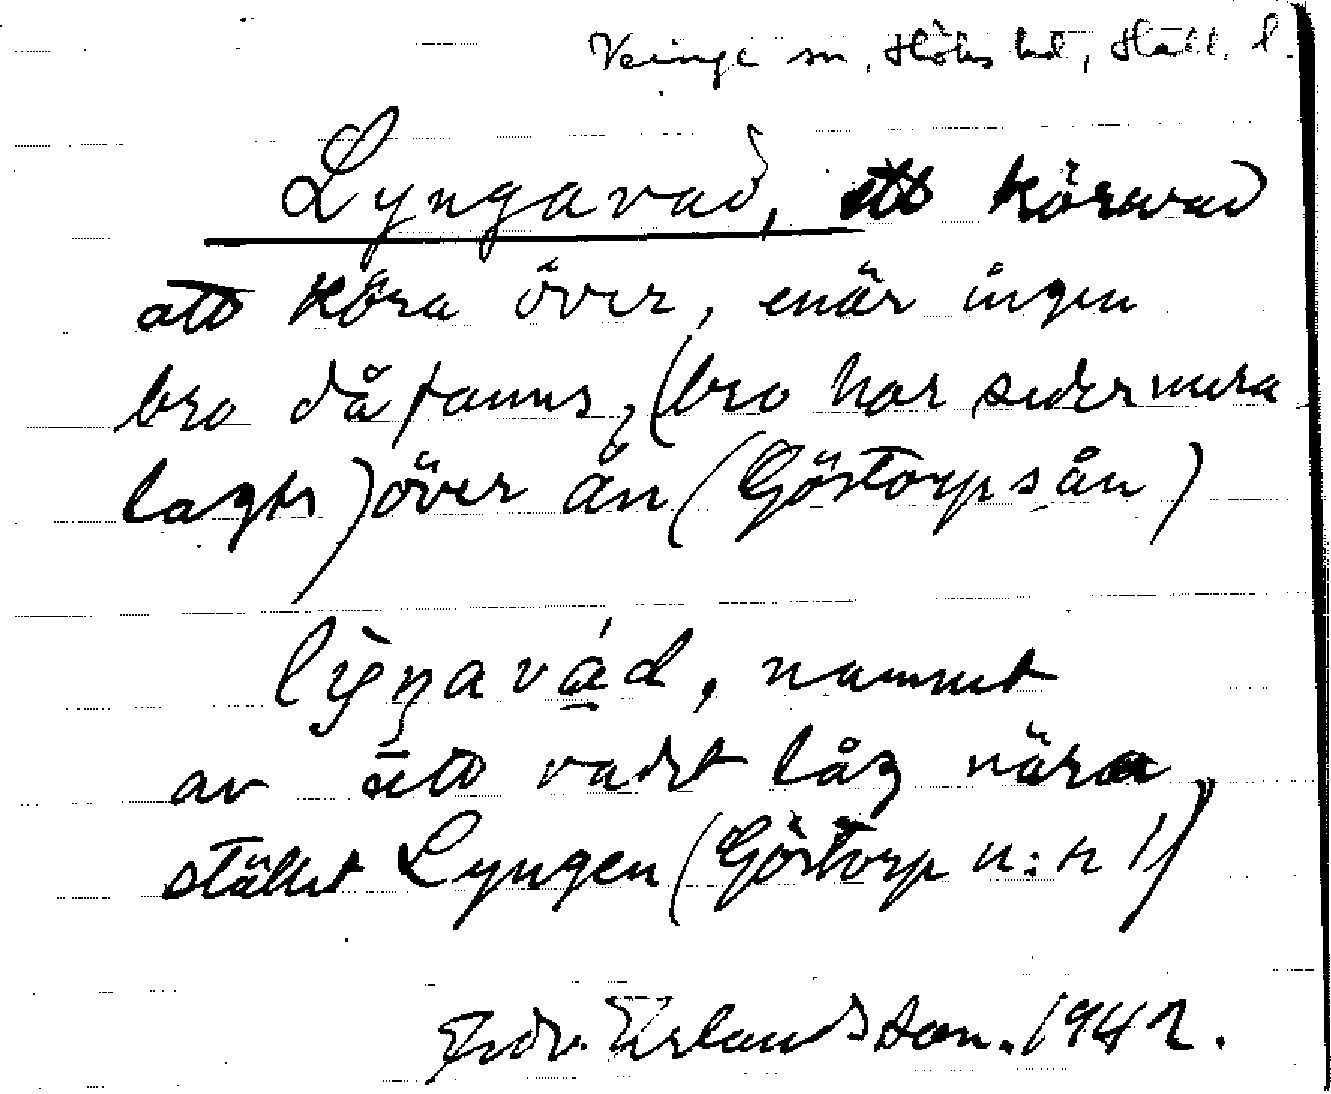 Veinge sn, Höks hd, Hall. l.
Lyngavad, ett körevad
att köra över, enär ingen
bro då fanns, (bro har sedermera
lagts) över ån (Göstorpsån)
av att vadet låg nära
stället Lyngen (Göstorp n:r 1)
Edv. Erlandsson. 1942.